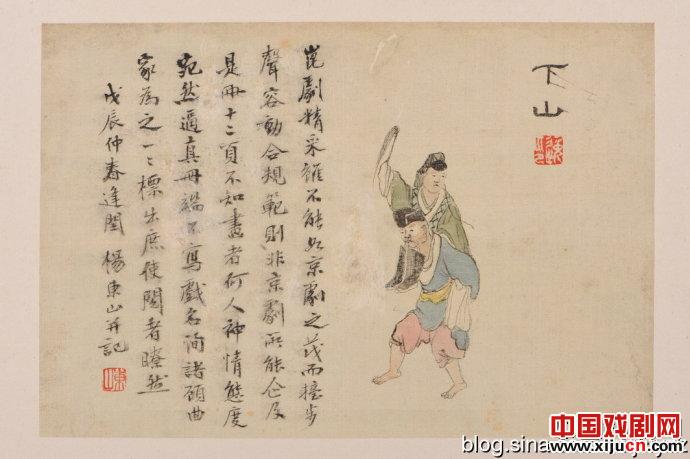 下山
崑劇精采雖不能如京劇之茂而擡步
聲容動合規範則非京劇所能企及
是冊十二頁不知畫者何人神情態度
宛然逼真冊端不寫戲名詢諸顧曲
家為之一一標出庶使閱者瞭然
戊辰仲春逢閏 楊東山并記
中国戏剧网
www.xijucn.com
blog.sina